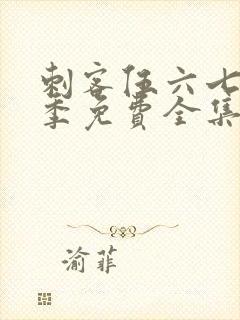 刺客伍六七
季免費全集
渝菲